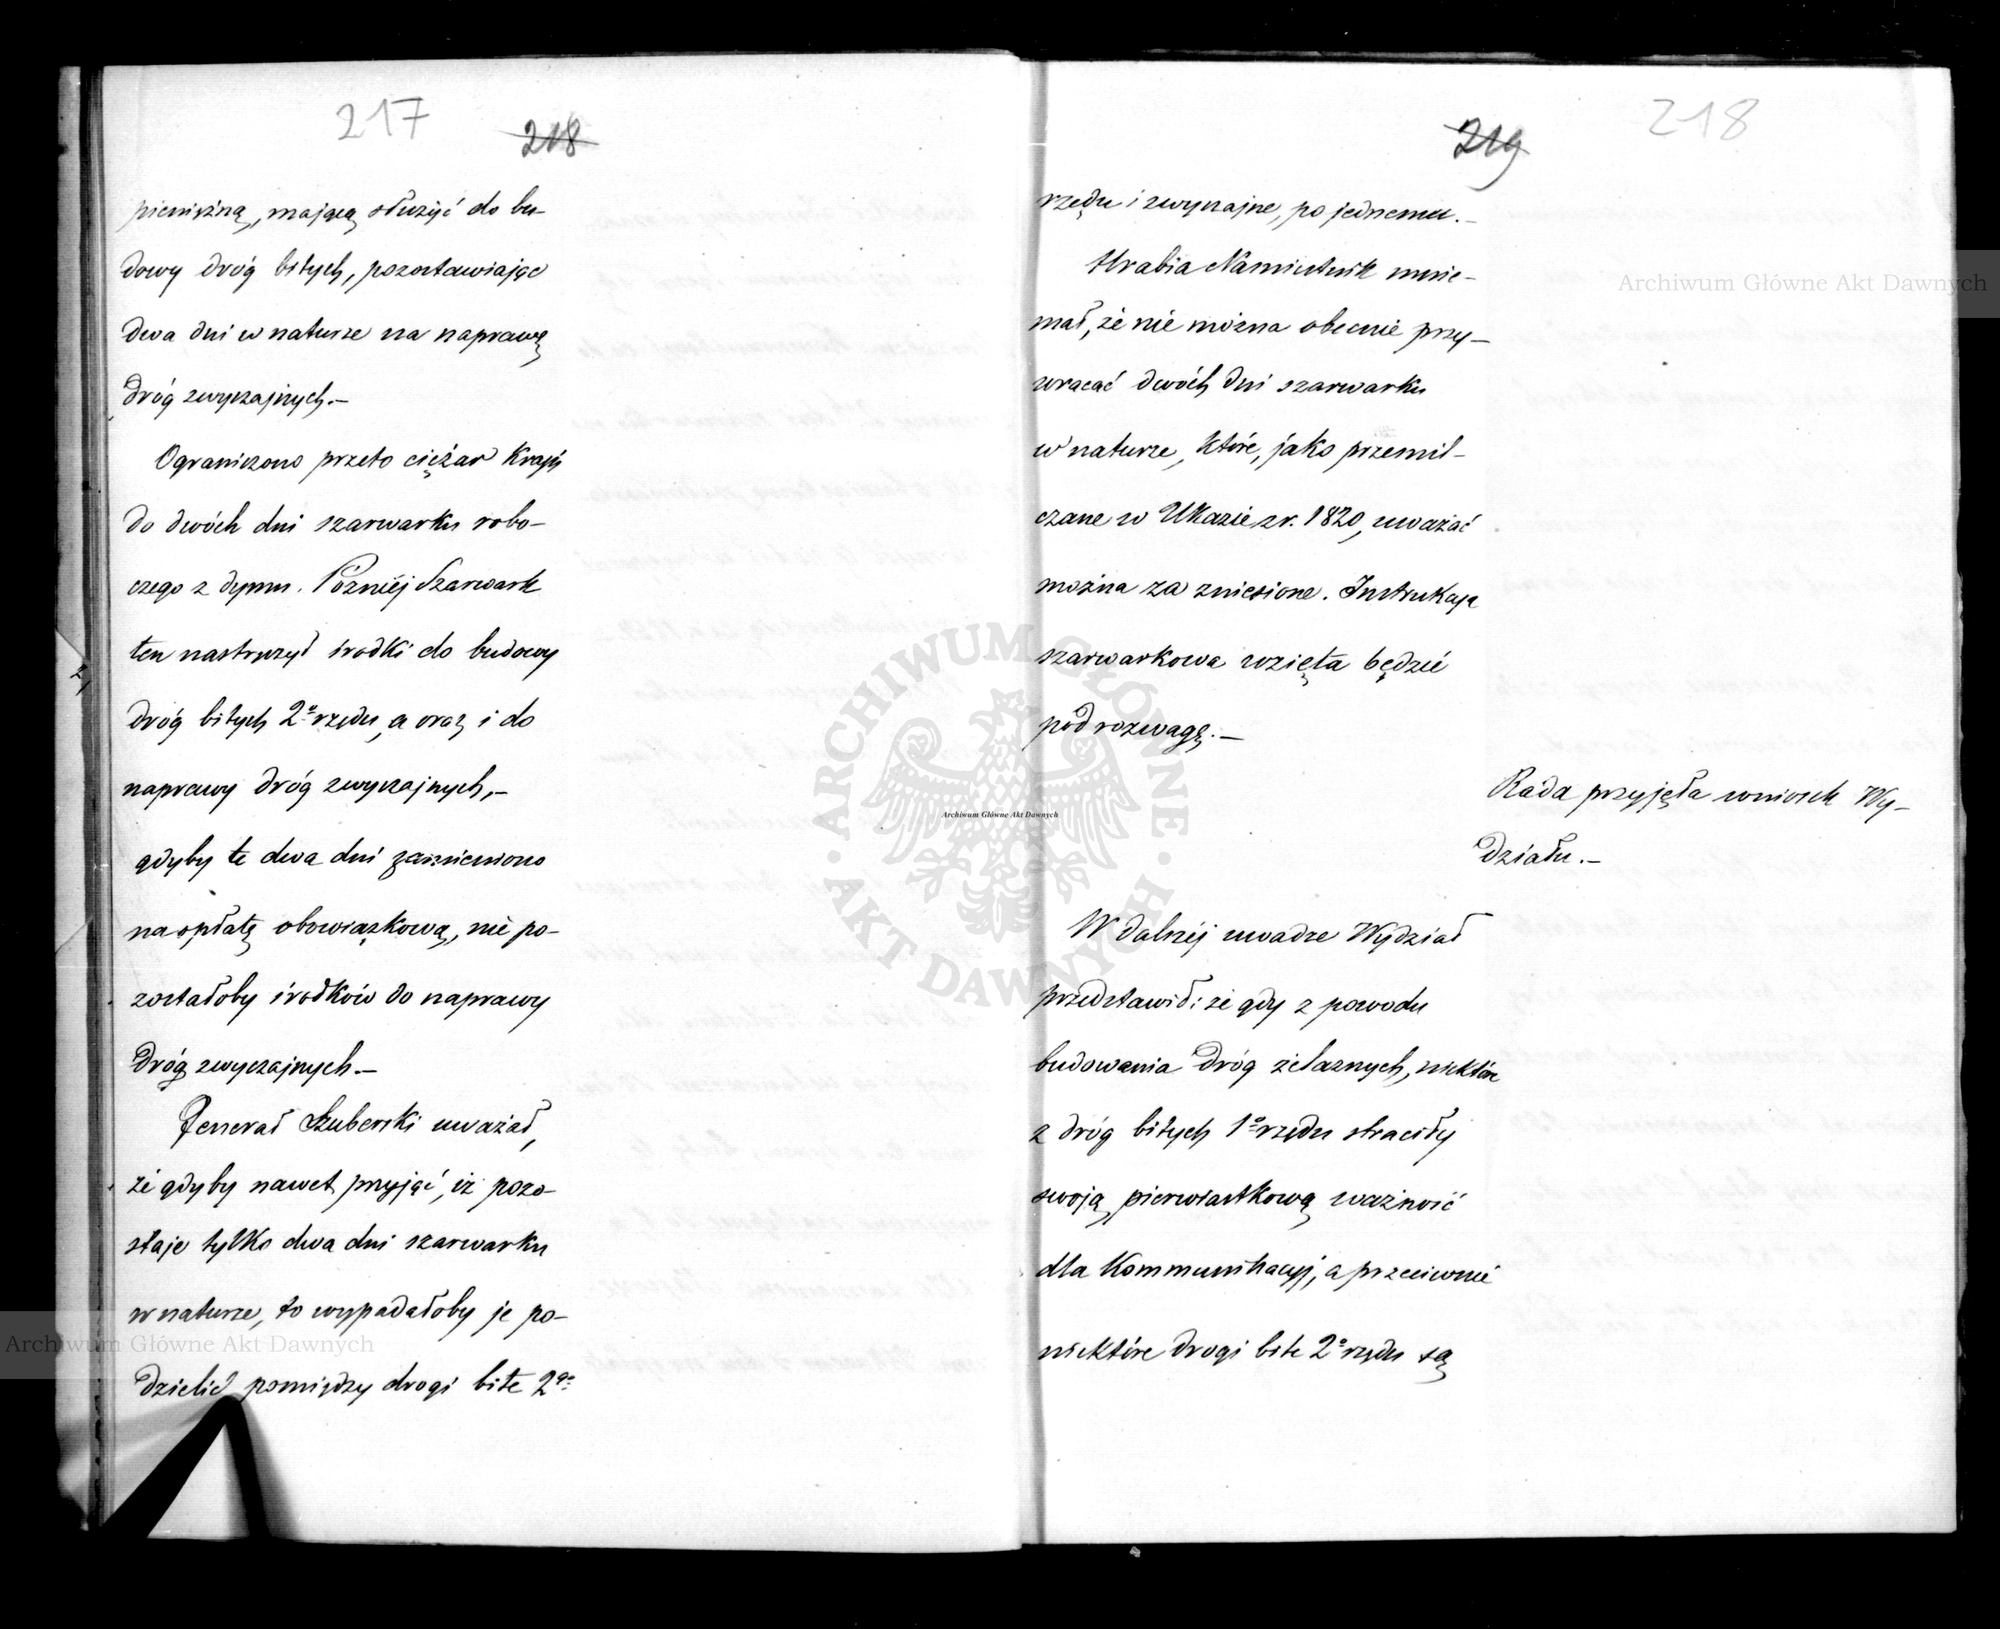 217
218
pieniężną, mającą służyć do bu-
dowy dróg bitych, pozostawiając
dwa dni w naturze na naprawę
dróg zwyczajnych.—
Ograniczono przeto ciężar Kraju
do dwóch dni szarwarku robo-
czego z dymu. Później Szarwark
ten nastręczył środki do budowy
dróg bitych 2º rzędu, a oraz i do
naprawy dróg zwyczajnych,—
gdyby te dwa dni zamieniono
na opłatę obowiązkową, nie po-
zostałoby środków do naprawy
dróg zwyczajnych.—
Jenerał Szuberski uważał,
że gdyby nawet przyjąć, iż pozo-
staje tylko dwa dni szarwarku
w naturze, to wypadałoby je po-
dzielić pomiędzy drogi bite 2go
219
218
rzędu i zwyczajne, po jednemu.—
Hrabia Namiestnik mnie-
mał, że nie można obecnie przy-
wracać dwóch dni szarwarku
w naturze, które, jako przemil-
czane w Ukazie z r. 1820, uważać
można za zniesione. Instrukcya
szarwarkowa wzięta będzie
pod rozwagę.—
Rada przyjęła wniosek Wy-
działu.—
W dalszéj uwadze Wydział
przedstawił: że gdy z powodu
budowania dróg żelaznych, niektóre
z dróg bitych 1º rzędu straciły
swoją pierwiastkową ważność
dla Kommunikacyj, a przeciwnie
niektóre drogi bite 2º rzędu są
Archiwum Główne Akt Dawnych
Archiwum Główne Akt Dawnych
Archiwum Główne Akt Dawnych
ARCHIWUM GŁÓWNE
AKT DAWNYCH